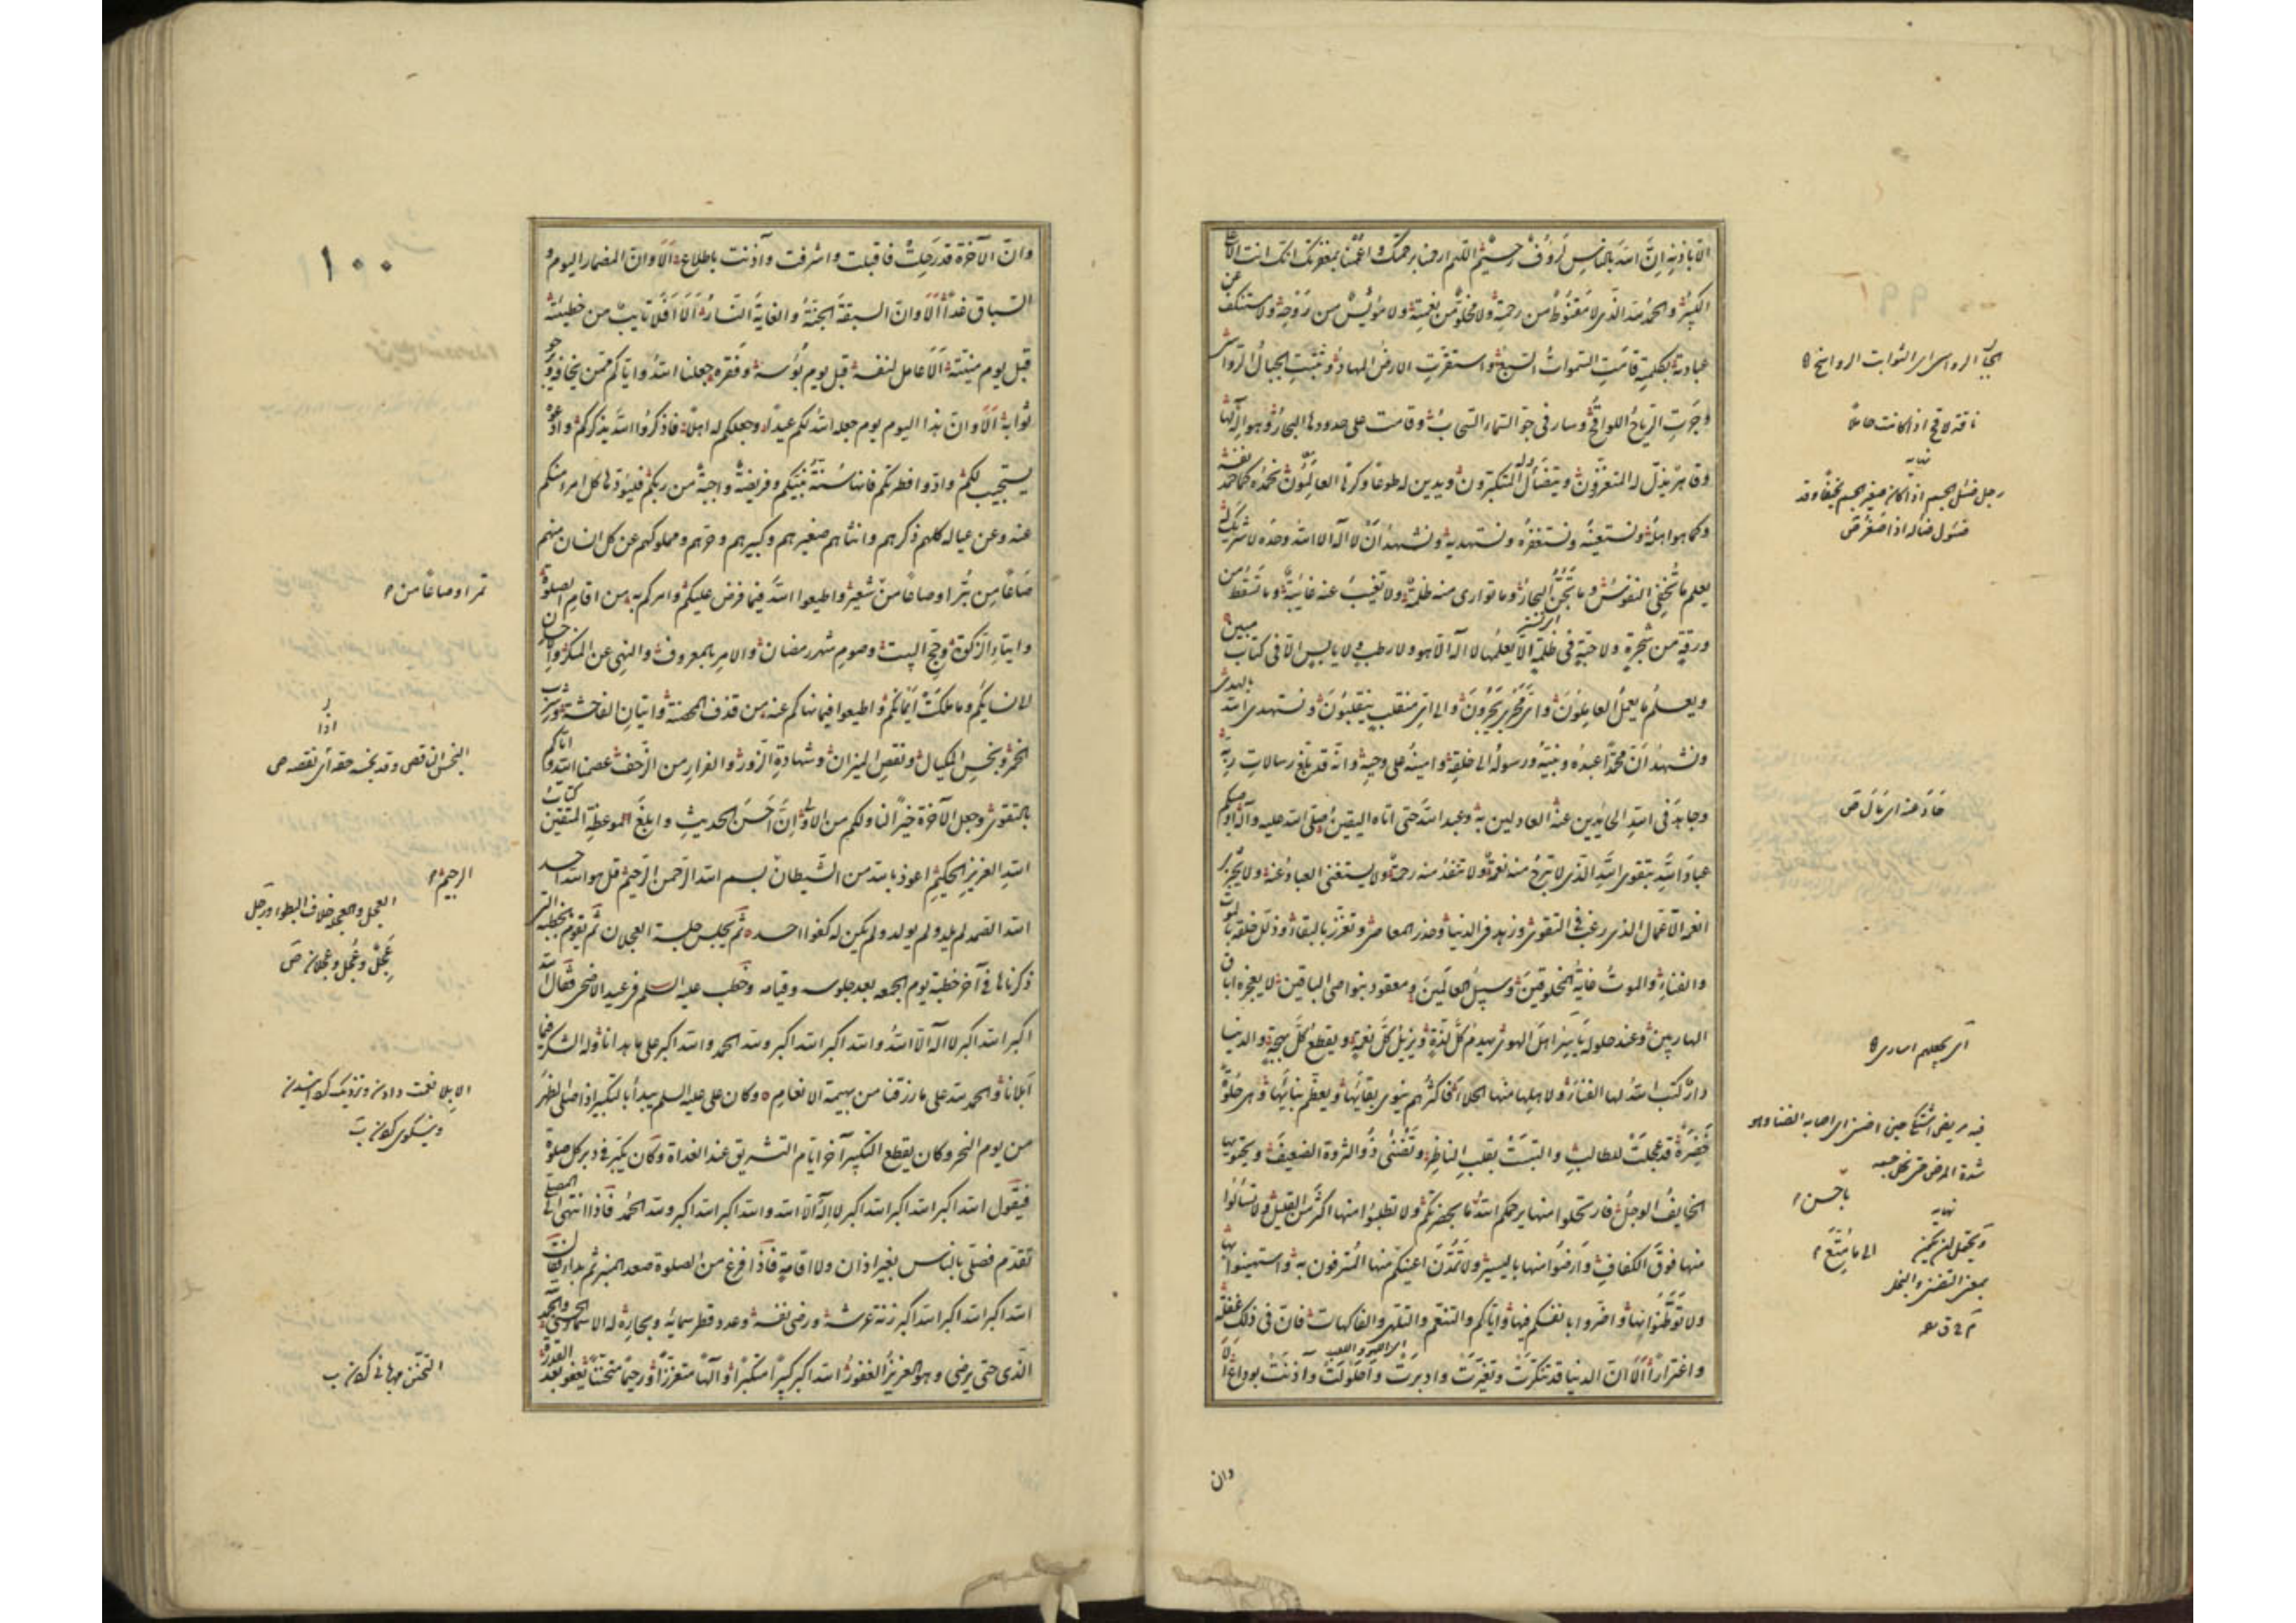 الا باذنه ان الله بالناس لرؤف رحيم اللهم ارحمنا برحمتك واعمنا بمغفرتك انك انت العلي
الكبير والحمد لله الذي لا مقنوط من رحمته ولا مخلو من نعمته ولا مؤيس من روحه ولا مستنكف عن
عبادته بكلمته قامت السموات السبع واستقرت الارض المهاد وثبتت الجبال الرواسي
وجرت الرياح اللواقح وسار في جو السماء السحاب وقامت على حدودها البحار وهو اله لها
وقاهر يذل له المتعززون ويتضأل له المتكبرون ويدين له طوعا وكرها العالمون نحمده كما حمد نفسه
وكما هو اهله ونستعينه ونستغفره ونستهديه ونشهد ان لا اله الا الله وحده لا شريك له
يعلم ما تخفي النفوس وما تجن البحار وما توارى منه ظلمة ولا تغيب عنه غايبة وما تسقط من
ورقة من شجرة ولا حبة في ظلمة الا يعلمها لا اله الا هو ولا رطب ولا يابس الا في كتاب مبين
ويعلم ما يعمل العاملون واي مجرى يجرون والى اي منقلب ينقلبون ونستهدي الله بالهدى
ونشهد ان محمدا عبده ونبيه ورسوله الى خلقه وامينه على وحيه وانه قد بلغ رسالات ربه
وجاهد في الله الحايدين عنه العادلين به وعبد الله حتى اتاه اليقين صلى الله عليه وآله اوصيكم
عباد الله بتقوى الله الذي لا تبرح منه نعمة ولا تنفد منه رحمة ولا يستغني العباد عنه ولا يجزي
انعمه الاعمال الذي رغب في التقوى وزهد في الدنيا وحذر المعاصي وتعزز بالبقاء وذلل خلقه بالموت
والفناء والموت غاية المخلوقين وسبيل العالمين ومعقود بنواصي الباقين لا يعجزه اباق
الهاربين وعند حلوله يأسر اهل الهوى يهدم كل لذة ويزيل كل نعمة ويقطع كل بهجة والدنيا
دار كتب الله لها الفناء ولاهلها منها الجلاء فاكثرهم ينوي بقاءها ويعظم بناءها وهي حلوة
خضرة قد عجلت للطالب والتبست بقلب الناظر وتضني ذو الثروة الضعيف ويجتويها
الخايف الوجل فارتحلوا منها يرحمكم الله ما بحضرتكم ولا تطلبوا منها اكثر من القليل ولا تسألوا
منها فوق الكفاف وارضوا منها باليسير ولا تمدن اعينكم منها الى المترفون به واستهينوا بها
ولا توطنوها واضروا بانفسكم فيها واياكم والتنعم والتلهي والفاكهات فان في ذلك غفلة
واغترارا الا ان الدنيا قد تنكرت وتغيرت وادبرت واحلولت وآذنت بوداع الا
وان
الجبال الرواسي اي الثوابت الرواسخ
ناقة لاقح اذا كانت حاملا
نهاية
رجل ضئيل الجسم اذا كان صغير الجسم نحيفا وقد
ضئول ضآلة اذا صغر ص
حاد عنه اي مال ص
اي يجعلهم اسارى
باحسن
نهاية
الى ما متع
١٠٠
وان الآخرة قد رحلت فاقبلت واشرفت وآذنت باطلاع الا وان المضمار اليوم و
السباق غدا الا وان السبقة الجنة والغاية النار الا افلا تايب من خطيئته
قبل يوم منيته الا عامل لنفسه قبل يوم بؤسه وفقره جعلنا الله واياكم ممن يخافه ويرجو
ثوابه الا وان هذا اليوم يوم جعله الله لكم عيدا وجعلكم له اهلا فاذكروا الله يذكركم وادعوه
يستجيب لكم وادوا فطرتكم فانها سنة نبيكم وفريضة واجبة من ربكم فليؤدها كل امرء منكم
عنه وعن عياله كلهم ذكرهم وانثاهم صغيرهم وكبيرهم وحرهم ومملوكهم عن كل انسان منهم
صاعا من بر او صاعا من شعير واطيعوا الله فيما فرض عليكم وامركم به من اقام الصلوة
وايتاء الزكوة وحج البيت وصوم شهر رمضان والامر بالمعروف والنهي عن المنكر والاحسان
الى نسائكم وما ملكت ايمانكم واطيعوا فيما نهاكم عنه من قذف المحصنة واتيان الفاحشة وشرب
الخمر وبخس المكيال ونقص الميزان وشهادة الزور والفرار من الزحف عصمنا الله واياكم
بالتقوى وجعل الآخرة خيرا لنا ولكم من الاولى ان احسن الحديث وابلغ الموعظة المتقين كتاب
الله العزيز الحكيم اعوذ بالله من الشيطان بسم الله الرحمن الرحيم قل هو الله احد
الله الصمد لم يلد ولم يولد ولم يكن له كفوا احد ثم يجلس جلسة العجلان ثم يقوم بالخطبة التي
ذكرناها في آخر خطبة يوم الجمعه بعد جلوسه وقيامه وخطب عليه السلم في عيد الاضحى فقال الله
اكبر الله اكبر لا اله الا الله والله اكبر الله اكبر ولله الحمد والله اكبر على ما هدانا وله الشكر فيما
ابلانا والحمد لله على ما رزقنا من بهيمة الانعام وكان علي عليه السلم يبدأ بالتكبير اذا صلى الظهر
من يوم النحر وكان يقطع التكبير آخر ايام التشريق عند الغداة وكان يكبر في دبر كل صلوة
فيقول الله اكبر الله اكبر الله اكبر لا اله الا الله والله اكبر الله اكبر ولله الحمد فاذا انتهى الى المصلى
تقدم فصلى بالناس بغير اذان ولا اقامة فاذا فرغ من الصلوة صعد المنبر ثم بدأ فقال
الله اكبر الله اكبر الله اكبر زنة عرشه ورضى نفسه وعدد قطر سمائه وبحاره له الاسماء الحسنى والحمد لله
الذي حتى يرضى وهو العزيز الغفور الله اكبر كبيرا متكبرا والها متعززا ورحيما متحننا يعفو بعد القدرة
تمر او صاعا من
البخس الناقص وقد بخسه حقه اي نقصه ص
الرجيم
العجل والعجلة خلاف البطوء ورجل
عجل وعجل وعجلان ص